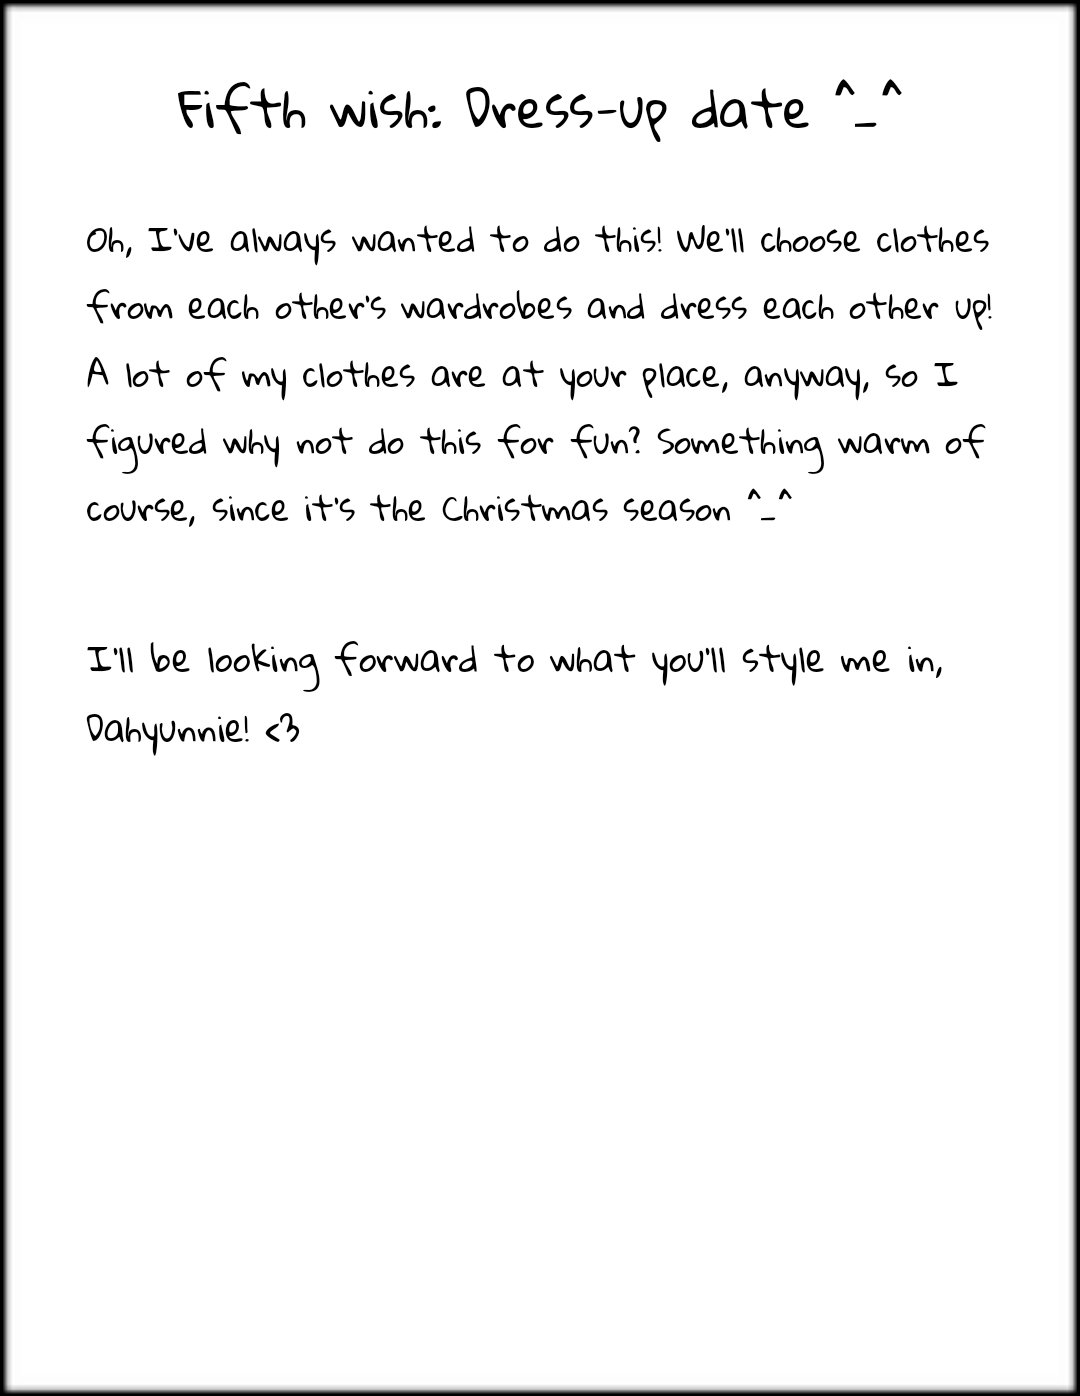 Fifth wish: Dress-up date ^_^
Oh, I've always wanted to do this! We'll choose clothes
from each other's wardrobes and dress each other up!
A lot of my clothes are at your place, anyway, so I
figured why not do this for fun? Something warm of
course, since it's the Christmas season ^_^
I'll be looking forward to what you'll style me in,
Dahyunnie! <3